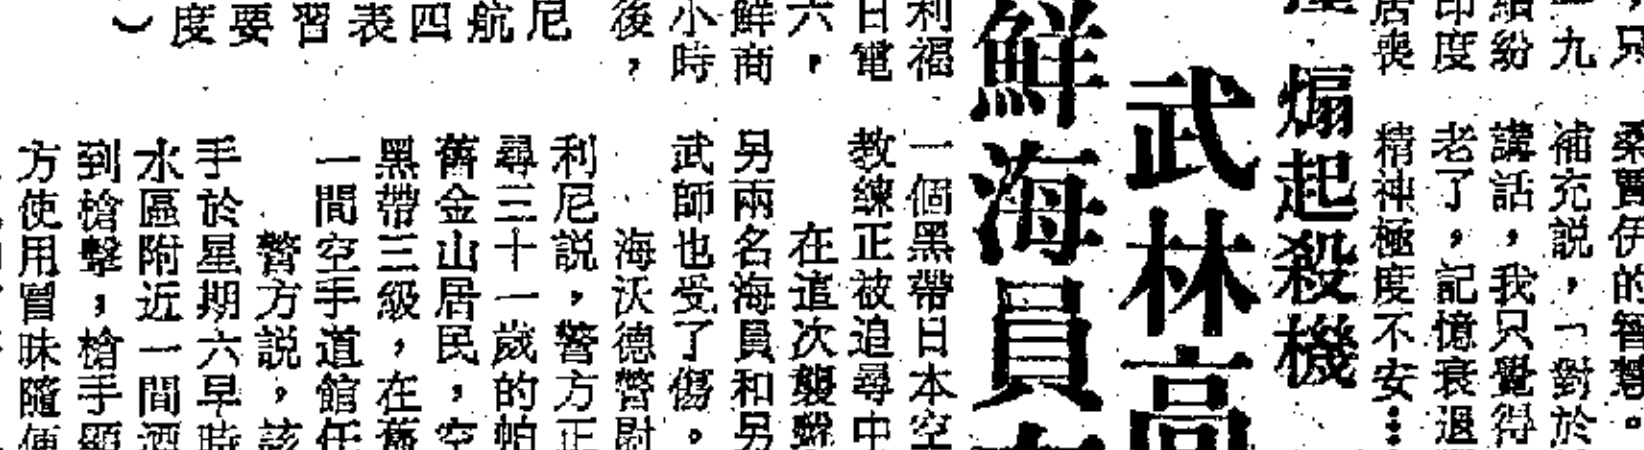 ，只
九
續紛
印度
居喪
桑賈伊的智慧。
補充説，「對於
講話，我只覺得
老了，記憶衰退
精神極度不安…
煽起殺機
武林高
鮮海員
利福
日電
六，
鮮商
小時
後，
尼航四表習要度
一個黑帶日本空
教練正被追尋中
在這次襲擊
另兩名海員和另
武師也受了傷。
海沃德警尉
利尼説，警方正
尋三十一歲的帕
舊金山居民，空
黑帶三級，在舊
一間空手道館任
警方説，該
手於星期六早時
水區附近一間酒
到槍擊，槍手顯
方使用冒昧隨便